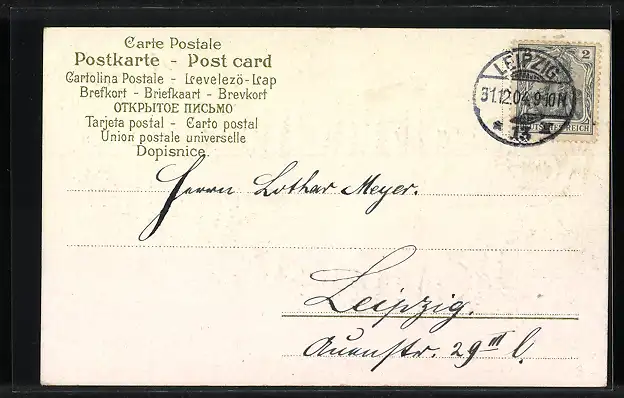 Carte Postale
Postkarte - Post card
Cartolina Postale - Levelező-Lap
Brefkort - Briefkaart - Brevkort
ОТКРЫТОЕ ПИСЬМО
Tarjeta postal - Carto postal
Union postale universelle
Dopisnice.
2
LEIPZIG
31.12.04. 9-10 N
* 13 *
DEUTSCHES REICH
Herrn Lothar Meyer.
Leipzig.
Auenstr. 29 III l.